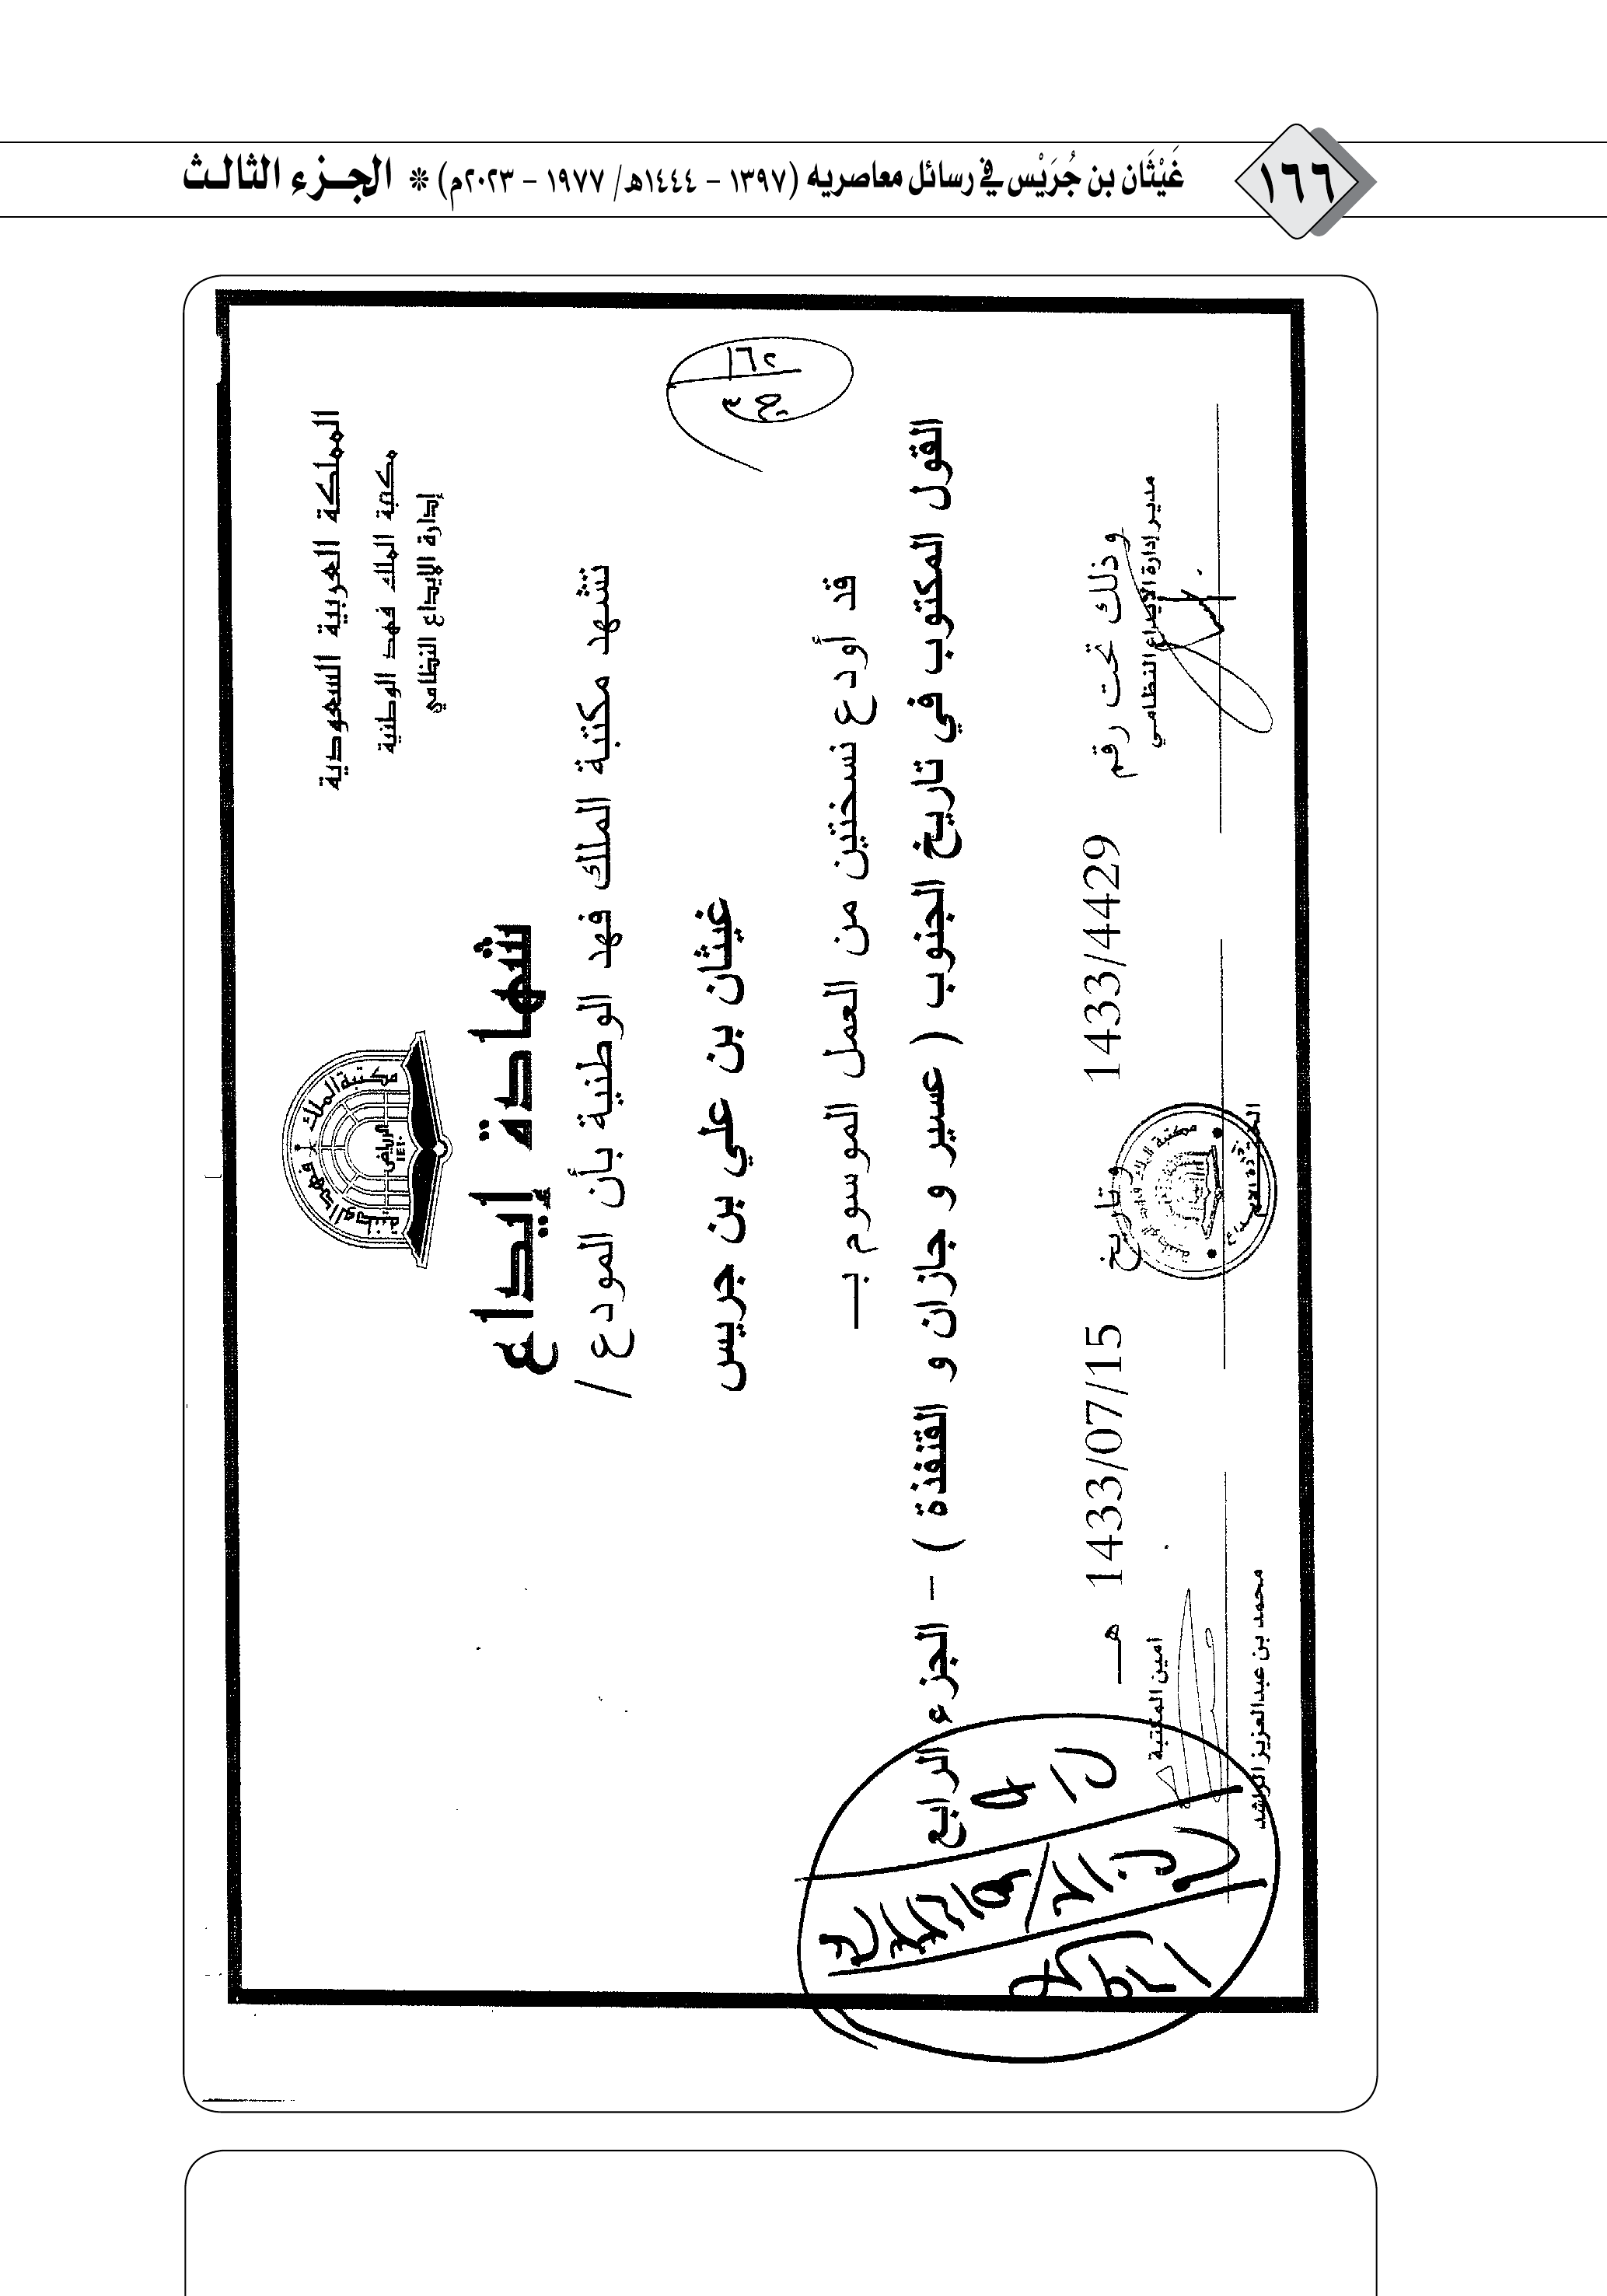 ١٦٦
غَيْثَان بن جُرَيْس في رسائل معاصريه (١٣٩٧ - ١٤٤٤هـ/ ١٩٧٧ - ٢٠٢٣م) * الجـزء الثالـث
المملكة العربية السعودية
مكتبة الملك فهد الوطنية
إدارة الإيداع النظامي
مكتبة الملك فهد الوطنية
الرياض
شهادة إيداع
تشهد مكتبة الملك فهد الوطنية بأن المودع /
غيثان بن علي بن جريس
قد أودع نسختين من العمل الموسوم بـ
القول المكتوب في تاريخ الجنوب ( عسير و جازان و القنفذة ) - الجزء الرابع
وذلك تحت رقم 1433/4429 وتاريخ 1433/07/15 هـ
مدير إدارة الإيداع النظامي
امين المكتبة
محمد بن عبدالعزيز الراشد
١٦٢
ج ٣